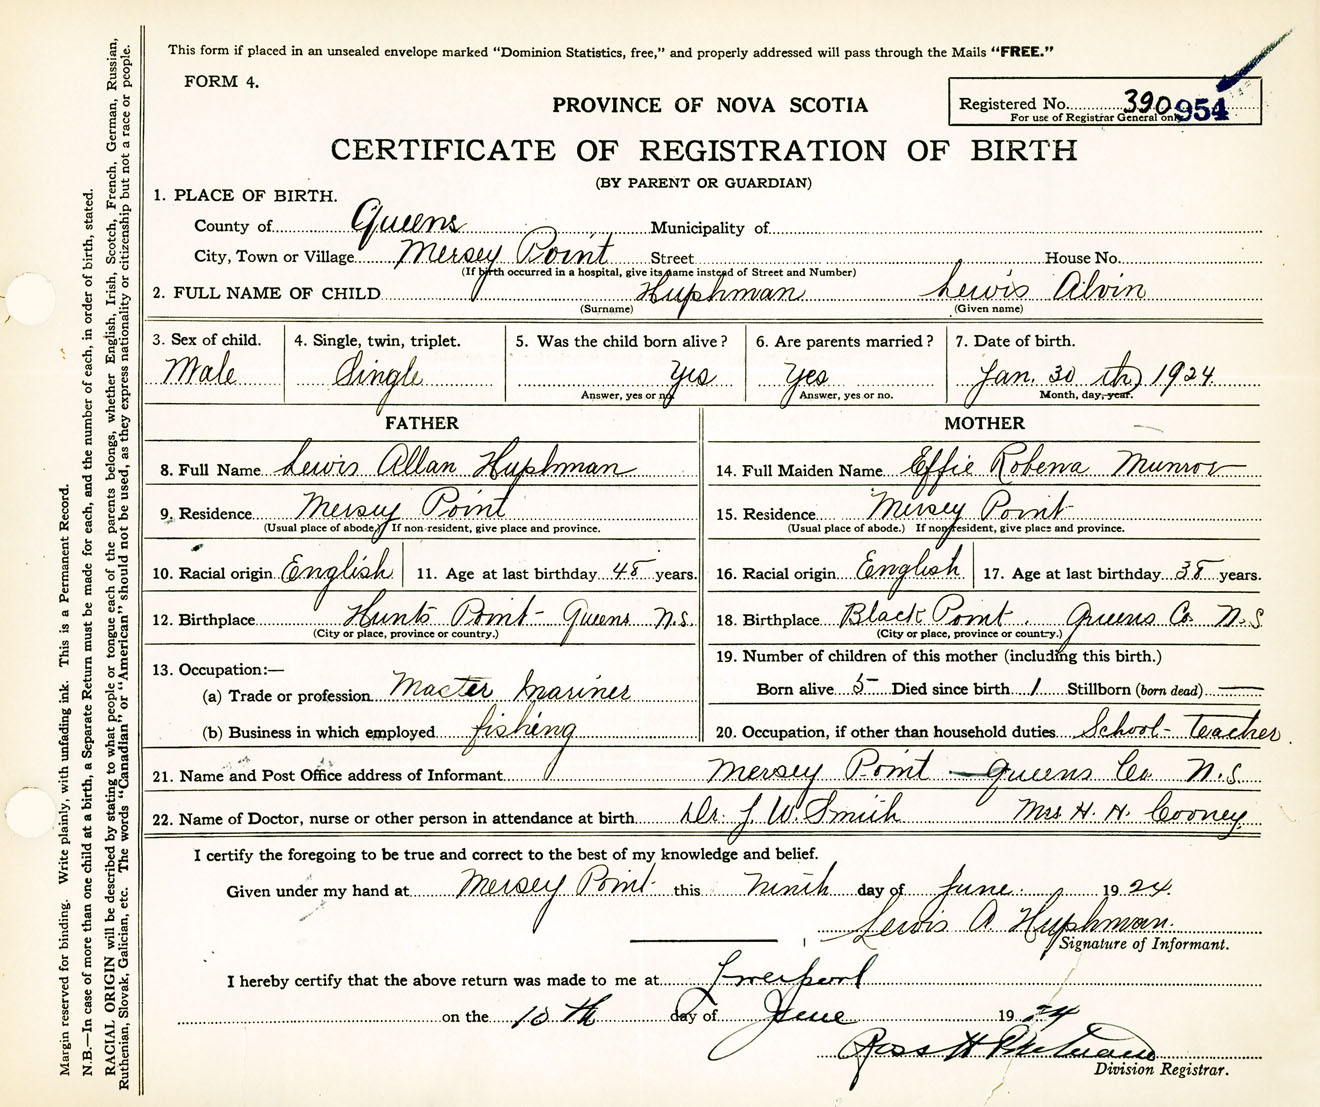 This form if placed in an unsealed envelope marked “Dominion Statistics, free,” and properly addressed will pass through the Mails “FREE.”
FORM 4.
PROVINCE OF NOVA SCOTIA
Registered No. 390 954
For use of Registrar General only
CERTIFICATE OF REGISTRATION OF BIRTH
(BY PARENT OR GUARDIAN)
1. PLACE OF BIRTH.
County of Queens Municipality of
City, Town or Village Mersey Point Street House No.
(If birth occurred in a hospital, give its name instead of Street and Number)
2. FULL NAME OF CHILD Huphman Lewis Alvin
(Surname) (Given name)
3. Sex of child. 4. Single, twin, triplet. 5. Was the child born alive? 6. Are parents married? 7. Date of birth.
Male Single Yes Yes Jan. 30 th 1924
Answer, yes or no. Answer, yes or no. Month, day, year.
FATHER MOTHER
8. Full Name Lewis Allan Huphman 14. Full Maiden Name Effie Robena Munroe
9. Residence Mersey Point 15. Residence Mersey Point
(Usual place of abode.) If non-resident, give place and province. (Usual place of abode.) If non-resident, give place and province.
10. Racial origin English 11. Age at last birthday 48 years. 16. Racial origin English 17. Age at last birthday 38 years.
12. Birthplace Hunts Point - Queens N.S. 18. Birthplace Black Point. Queens Co. N.S
(City or place, province or country.) (City or place, province or country.)
13. Occupation:— 19. Number of children of this mother (including this birth.)
(a) Trade or profession Master mariner Born alive 5 Died since birth 1 Stillborn (born dead) —
(b) Business in which employed fishing 20. Occupation, if other than household duties School-teacher
21. Name and Post Office address of Informant Mersey Point — Queens Co N.S.
22. Name of Doctor, nurse or other person in attendance at birth Dr. J. W. Smith Mrs. H. H. Cooney.
I certify the foregoing to be true and correct to the best of my knowledge and belief.
Given under my hand at Mersey Point this Ninth day of June 19 24.
Lewis A. Huphman.
Signature of Informant.
I hereby certify that the above return was made to me at Liverpool
on the 10 th day of June 19 24
Ross H
Division Registrar.
Margin reserved for binding. Write plainly, with unfading ink. This is a Permanent Record.
N.B.—In case of more than one child at a birth, a Separate Return must be made for each, and the number of each, in order of birth, stated.
RACIAL ORIGIN will be described by stating to what people or tongue each of the parents belongs, whether English, Irish, Scotch, French, German, Russian,
Ruthenian, Slovak, Galician, etc. The words “Canadian” or “American” should not be used, as they express nationality or citizenship but not a race or people.